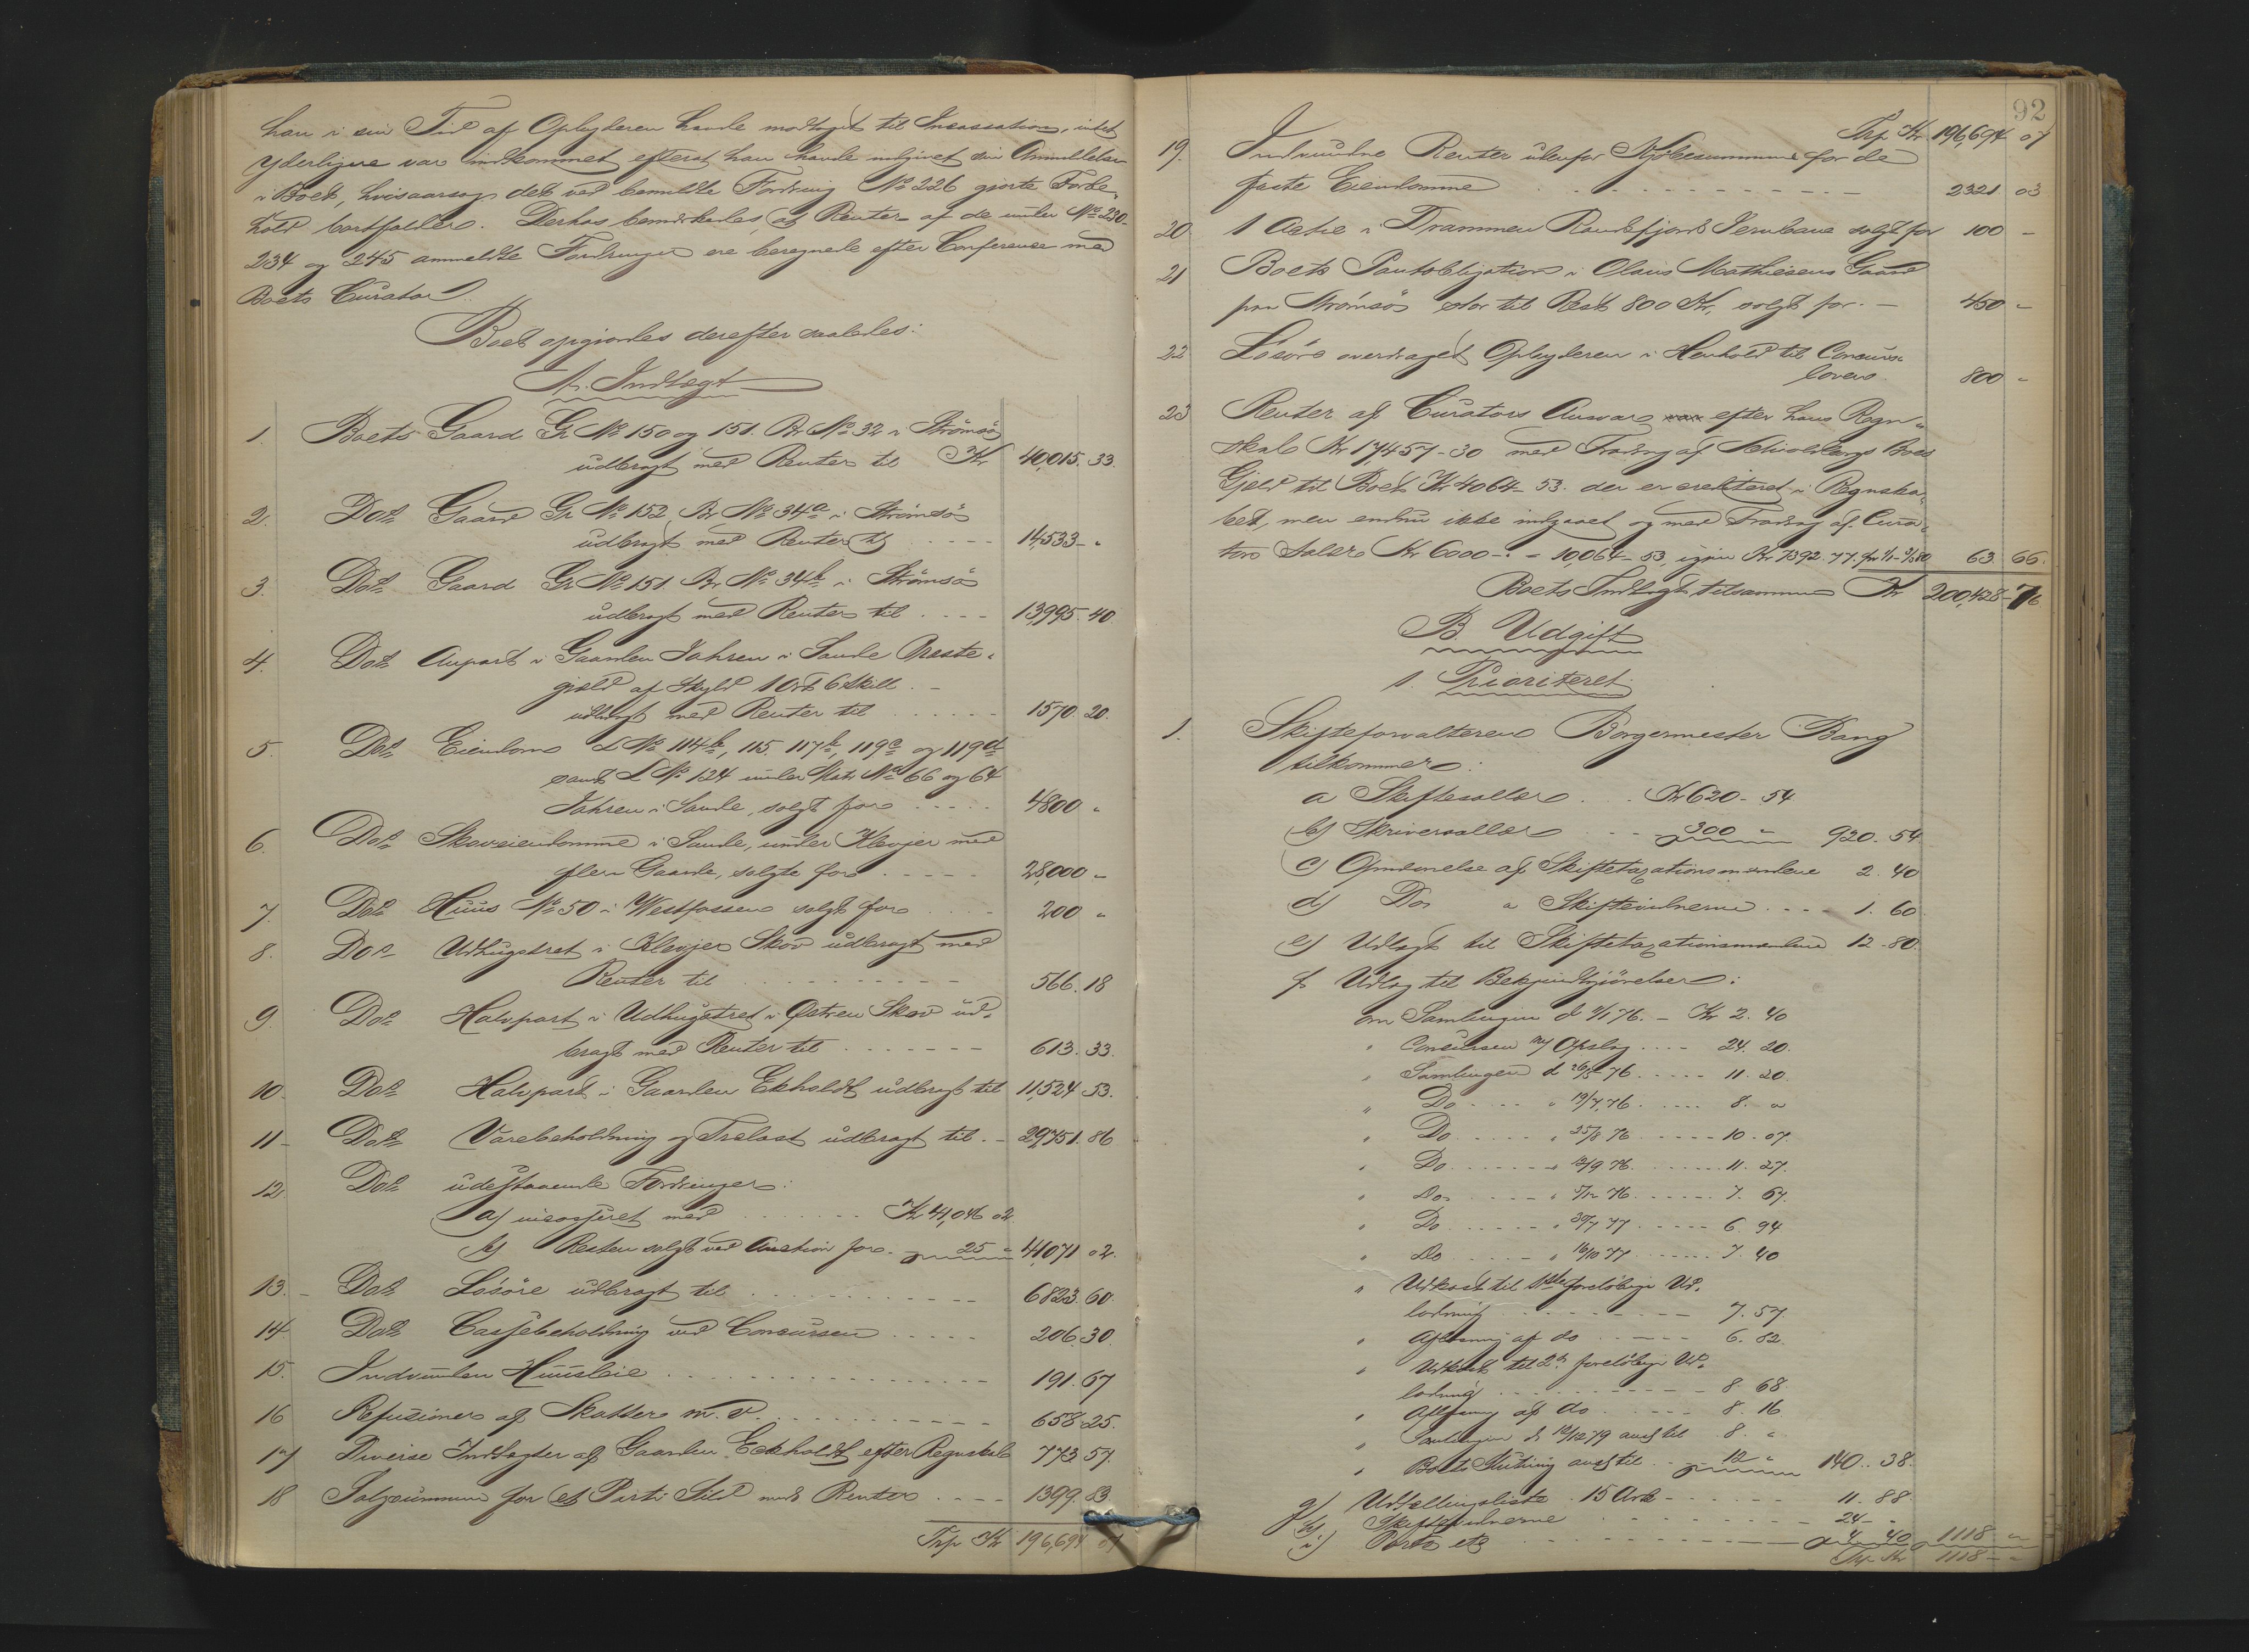 han i sin Tid af Opbyderen havde modtaget til Incassation, intet
yderligere var indkommet efterat han havde indgivet sin Anmeldelse
i Boet, hvisaarsag det ved bemeldte Fordring No 226 gjorte Forbe-
hold bortfalder. Derhos bemærkedes, at Renter af de under No 230-
234 og 245 anmeldte Fordringer ere beregnede efter Conference med
Boets Curator.
Boet opgjordes derefter saaledes:
A. Indtægt
1. Boets Gaard Gr No 150 og 151. Br No 32 i Strömsö
udbragt med Renter til Kr 40,015. 33.
2. Dets Gaard Gr No 152 Br No 34a i Strömsö
udbragt med Renter til 14,533 - "
3. Dets Gaard Gr No 151. Br No 34b i Strömsö
udbragt med Renter til 13,995. 40
4. Dets Anpart i Gaarden Jahren i Sande Præste-
gjeld af Skyld 1 Ort 6 Skill.
udbragt med Renter til 1570. 20.
5. Dets Eiendom L No 114b, 115. 117b, 119c og 119d
samt L No 124 under Matr No 66 og 64
Jahren i Sande, solgt for 4800 "
6. Dets Skoveiendomme i Sande, under Klevjer med
flere Gaarde, solgte for 28,000 "
7. Dets Huus No 50 i Westfossen solgt for 200 "
8. Dets Udhugstret i Klevjer Skov udbragt med
Renter til 566. 18
9. Dets Halvpart i Udhugstret i Østren Skov ud-
bragt med Renter til 613. 33.
10. Dets Halvpart i Gaarden Ekholdt udbragt til 11,524. 53.
11 Dets Varebeholdning og Trælast udbragt til. 29,751. 86
12. Dets udestaaende Fordringer:
a) incasseret med Kr 41,046 02
b) Resten solgt ved Auction for. 25 " 41,071 02.
13. Dets Lösöre udbragt til 6823. 60.
14 Dets Cassebeholdning ved Concursen 206. 30.
15. Indvunden Huusleie 191. 67
16 Refusioner af Skatter m. v. 658. 25.
17 Diverse Indtægter af Gaarden Ekholdt efter Regnskab 773 57.
18 Salgssummen for et Parti Sild med Renter 1399. 83.
Trp Kr 196,694 07
92
Trp Kr. 196,694 07
19. Indvundne Renter udenfor Kjöbesummene for de
faste Eiendomme 2321 03
20 1 Actie i Drammen Randsfjords Jernbane solgt for 100 -
21 Boets Pantobligation i Olaus Mathiesens Gaard
paa Strömsö stor til Rest 800 Kr, solgt for. 450 "
22 Lösöre overdraget Opbyderen i Henhold til Concurs-
loven 800 "
23 Renter af Curators Ansvar efter hans Regn-
skab Kr 17,457-30 med Fradrag af Boes
Gjeld til Boet Kr 4064-53. der er crediteret i Regnska-
bet, men endnu ikke indgaaet og med Fradrag af Cura-
tors Salær Kr 6000 - " - 10,064-53, igjen Kr 7392. 77. 63. 66.
Boets Indtægt tilsammen Kr 200,428-76
B. Udgift
1. Prioriteret
1. Skifteforvalteren Borgermester Bang
tilkommer:
a Skiftesallær Kr 620- 54
b) Skriversallær 300 " 920. 54.
c) Opnævnelse af Skiftetaxationsmændene 2. 40
d) Do " Skiftevidnerne 1. 60
e) Udlagt til Skiftetaxationsmændene 12-80.
f Udlæg til Bekjendtgjörelser:
om Samlingen d 2/1 76. - Kr 2. 40
" Concursen m/ Opslag 24. 20.
" Samlingen d 26/5 76 11. 20
" Do " 19/7 76 8. "
" Do " 25/8 76 10. 07.
" Do " 12/9 76. 11. 27.
" Do " 5/12 76 7. 67.
" Do " 30/7 77 6. 94
" Do " 16/10 77 7. 40
" Udkast til 1ste foreløbige Ud-
lodning 7. 57.
" Aflæsning af do 6. 82.
" Udkast til 2de foreløbige Ud-
lodning 8. 68.
" Aflæsning af do 8. 16
" Samlingen d 12/12 79 ansl til 8. "
" Boets Slutning ansl til 12 " 140. 38.
g) Udstellingsliste 15 Ark 11. 88.
h) Skiftevidnerne 24- "
i) Porto etc 4. 40 1118 "
Trp Kr 1118 - "